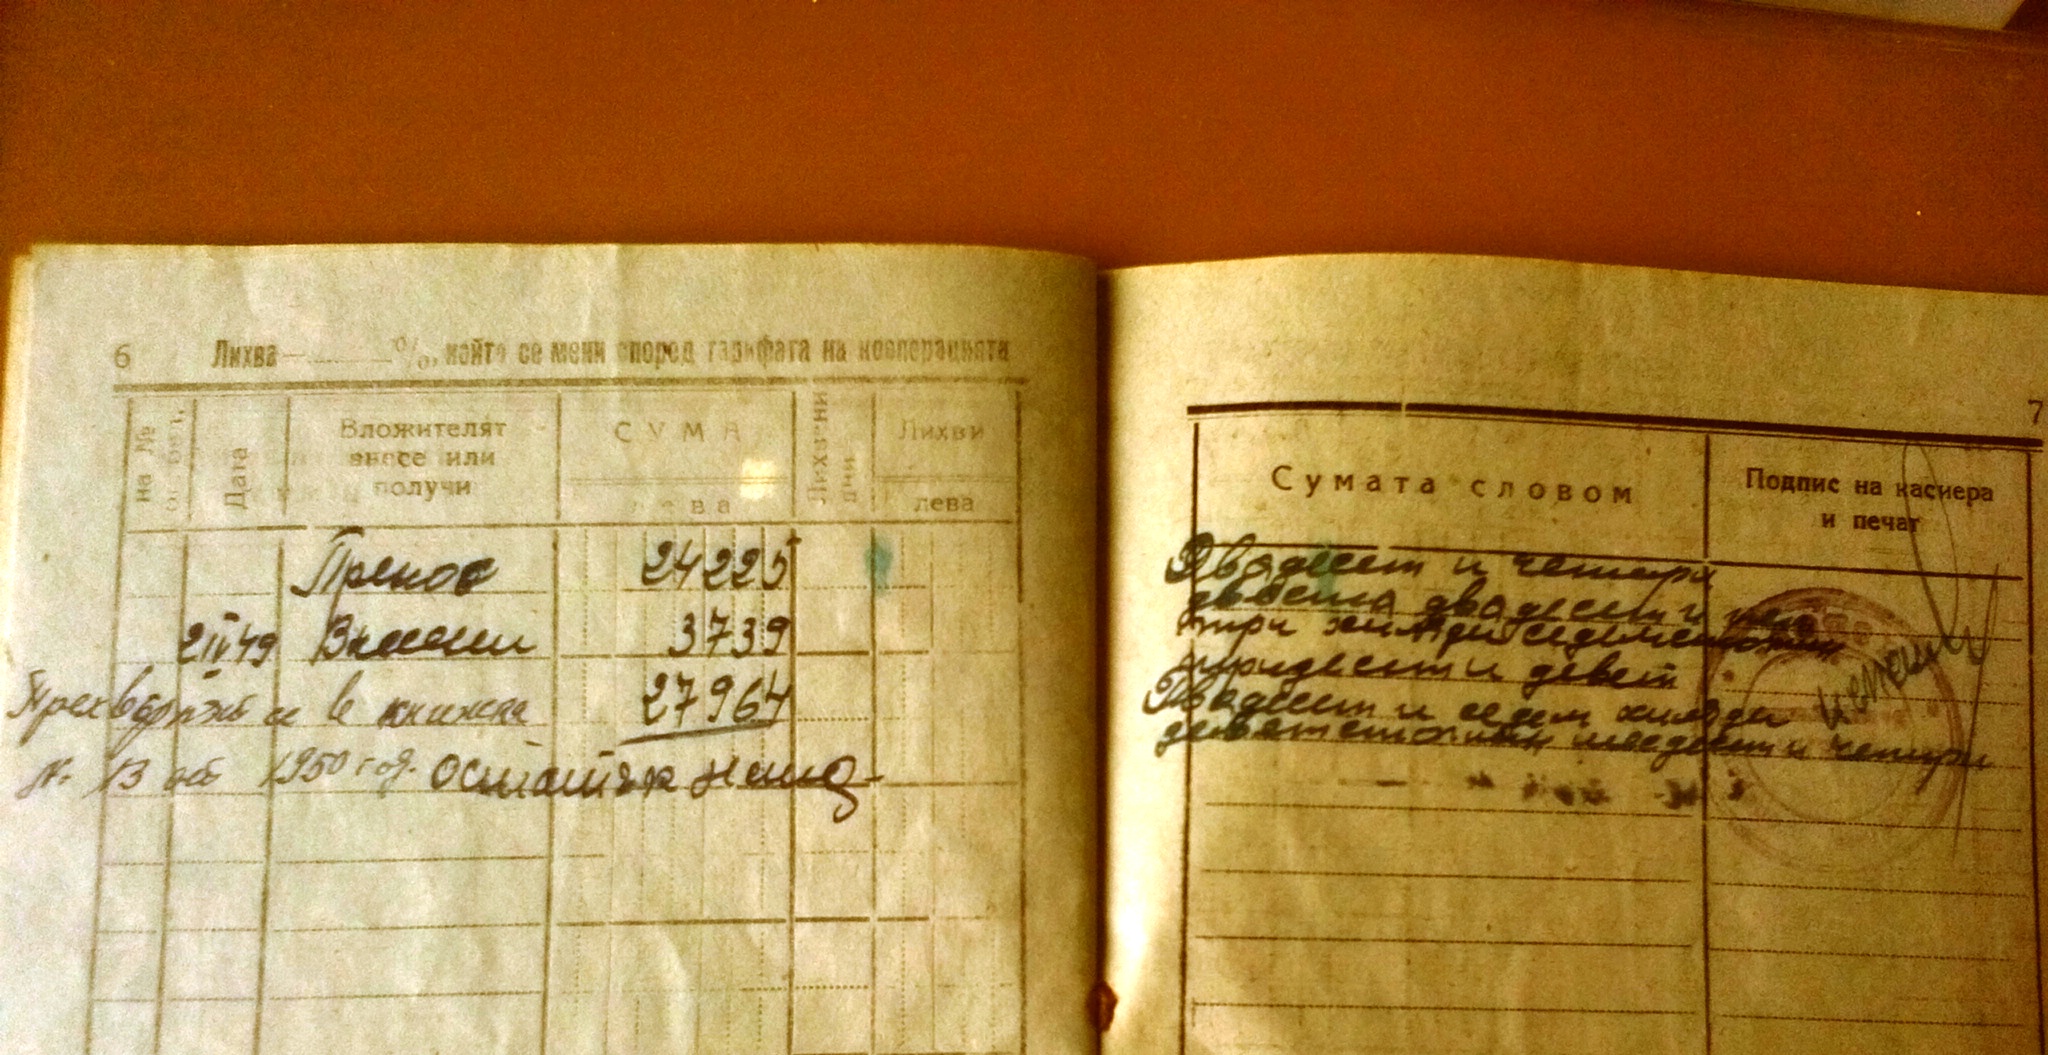 6
Лихва — % , който се мени според тарифата на кооперацията
на №
Дата
Вложителят
внесе или
получи
СУМА
лева
Лихвени
дни
Лихви
лева
Пренос 24225
2 IV 49 Внесени 3739
Прехвърлят се в книжка 27964
№ 13 от 1950 год. остатъка
7
Сумата словом
Подпис на касиера
и печат
Двадесет и четири
двеста двадесет и пет
три хиляди седемстотин
тридесет и девет
Двадесет и седем хиляди
деветстотин шесдесет и четири